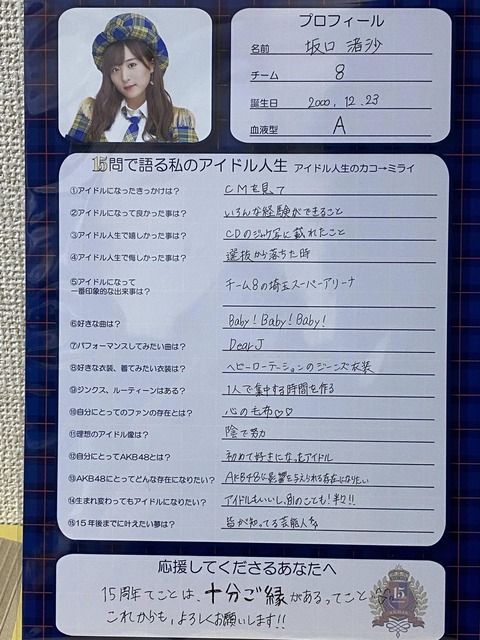 プロフィール
名前 坂口 渚沙
チーム 8
誕生日 2000, 12, 23
血液型 A
15問で語る私のアイドル人生 アイドル人生のカコ→ミライ
①アイドルになったきっかけは? CMを見て
②アイドルになって良かった事は? いろんな経験ができること
③アイドル人生で嬉しかった事は? CDのジャケ写に載れたこと
④アイドル人生で悔しかった事は? 選抜から落ちた時
⑤アイドルになって
一番印象的な出来事は? チーム8の埼玉スーパーアリーナ
⑥好きな曲は? Baby! Baby! Baby!
⑦パフォーマンスしてみたい曲は? Dear J
⑧好きな衣装、着てみたい衣装は? ヘビーローテーションのジーンズ衣装
⑨ジンクス、ルーティーンはある? 1人で集中する時間を作る
⑩自分にとってのファンの存在とは? 心の毛布♡♡
⑪理想のアイドル像は? 陰で努力
⑫自分にとってAKB48とは? 初めて好きになったアイドル
⑬AKB48にとってどんな存在になりたい? AKB48に影響を与えられる存在になりたい
⑭生まれ変わってもアイドルになりたい? アイドルもいいし、別のことも!半々!!
⑮15年後までに叶えたい夢は? 皆が知ってる芸能人
応援してくださるあなたへ
15周年てことは、十分ご縁があるってこと
これからも、よろしくお願いします!!
15